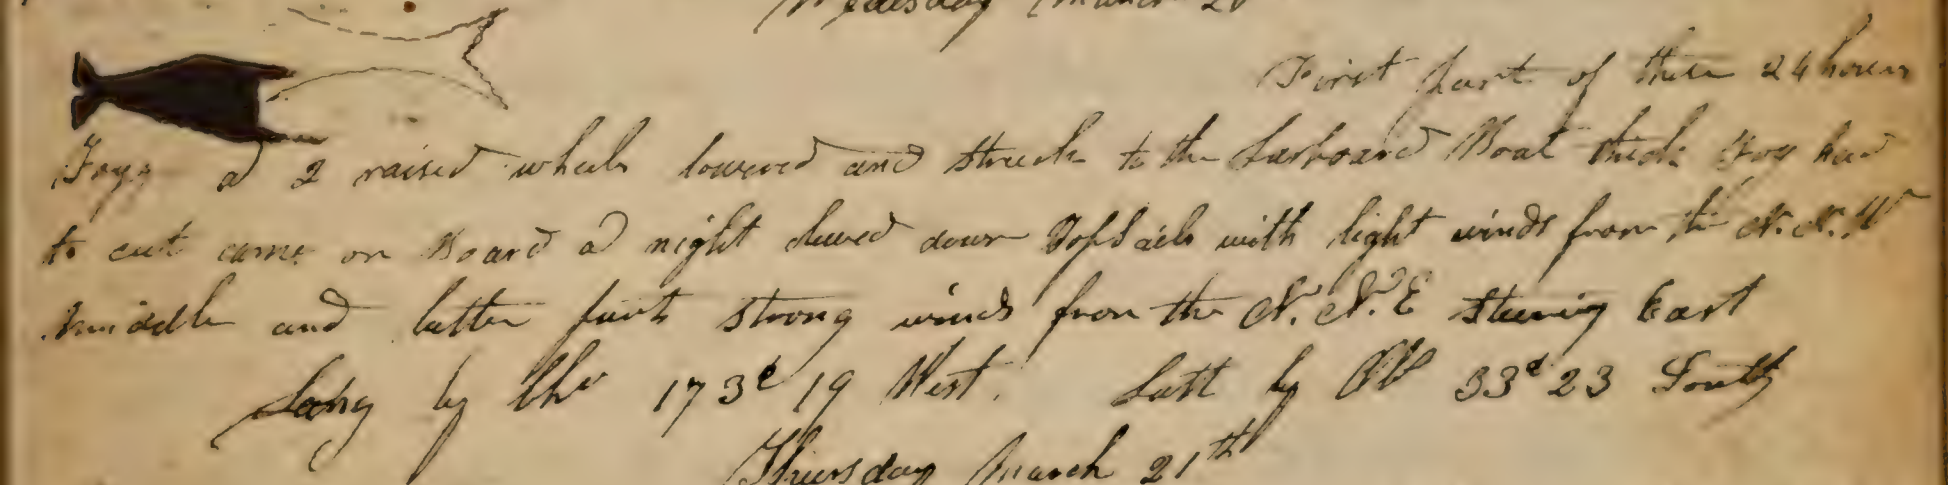 Wedesday March 20
First part of these 24 hours
Foggy at 2 raised whals lowered and struck to the Larboard Boat thick Fog had
to cut came on Board at night clewed down Topsails with light winds from the N.N.W
middle and latter parts strong winds from the N.N.E Steering East
Long by Chr 173d 19 West. Latt by Ob 33d 23 South
Thursday March 21th